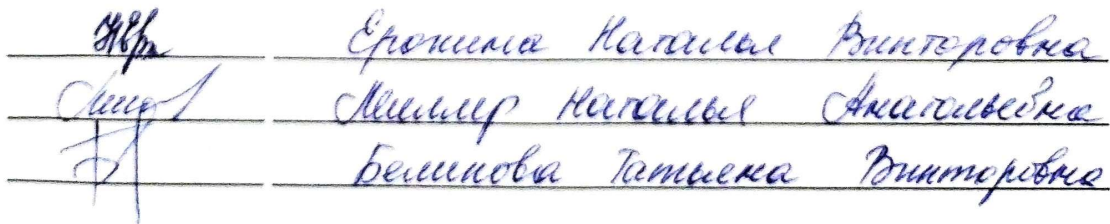 Ерохина Наталья Викторовна
Миллер Наталья Анатольевна
Беликова Татьяна Викторовна